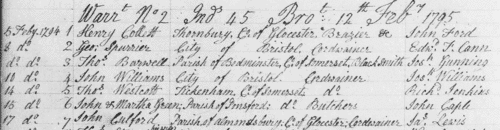 Warrt. No 2 Ind 45 Brot. 12th Feby 1795
5 Feby. 1794 1 Henry Collett Thornbury, Co. of Glocester Brazier &c John Ford
8 do. 2 Geo. Spurrier City of Bristol Cordwainer Edwd. T. Cann
do do. 3 Thos. Barwell Parish of Bedminster, C. of Somerset, Black Smith Jos: Gunning
10 do. 4 John Williams City of Bristol Cordwainer Jos: Williams
14 do 5 Thos. Westcott Tickenham, C. of Somerset, do Richd. Jenkins
16 do 6 John & Martha Green; Parish of do Butchers John Caple
17 do. 7 John Parish of Almondsbury; C. of Glocester; Cordwainer Jas. Lewis